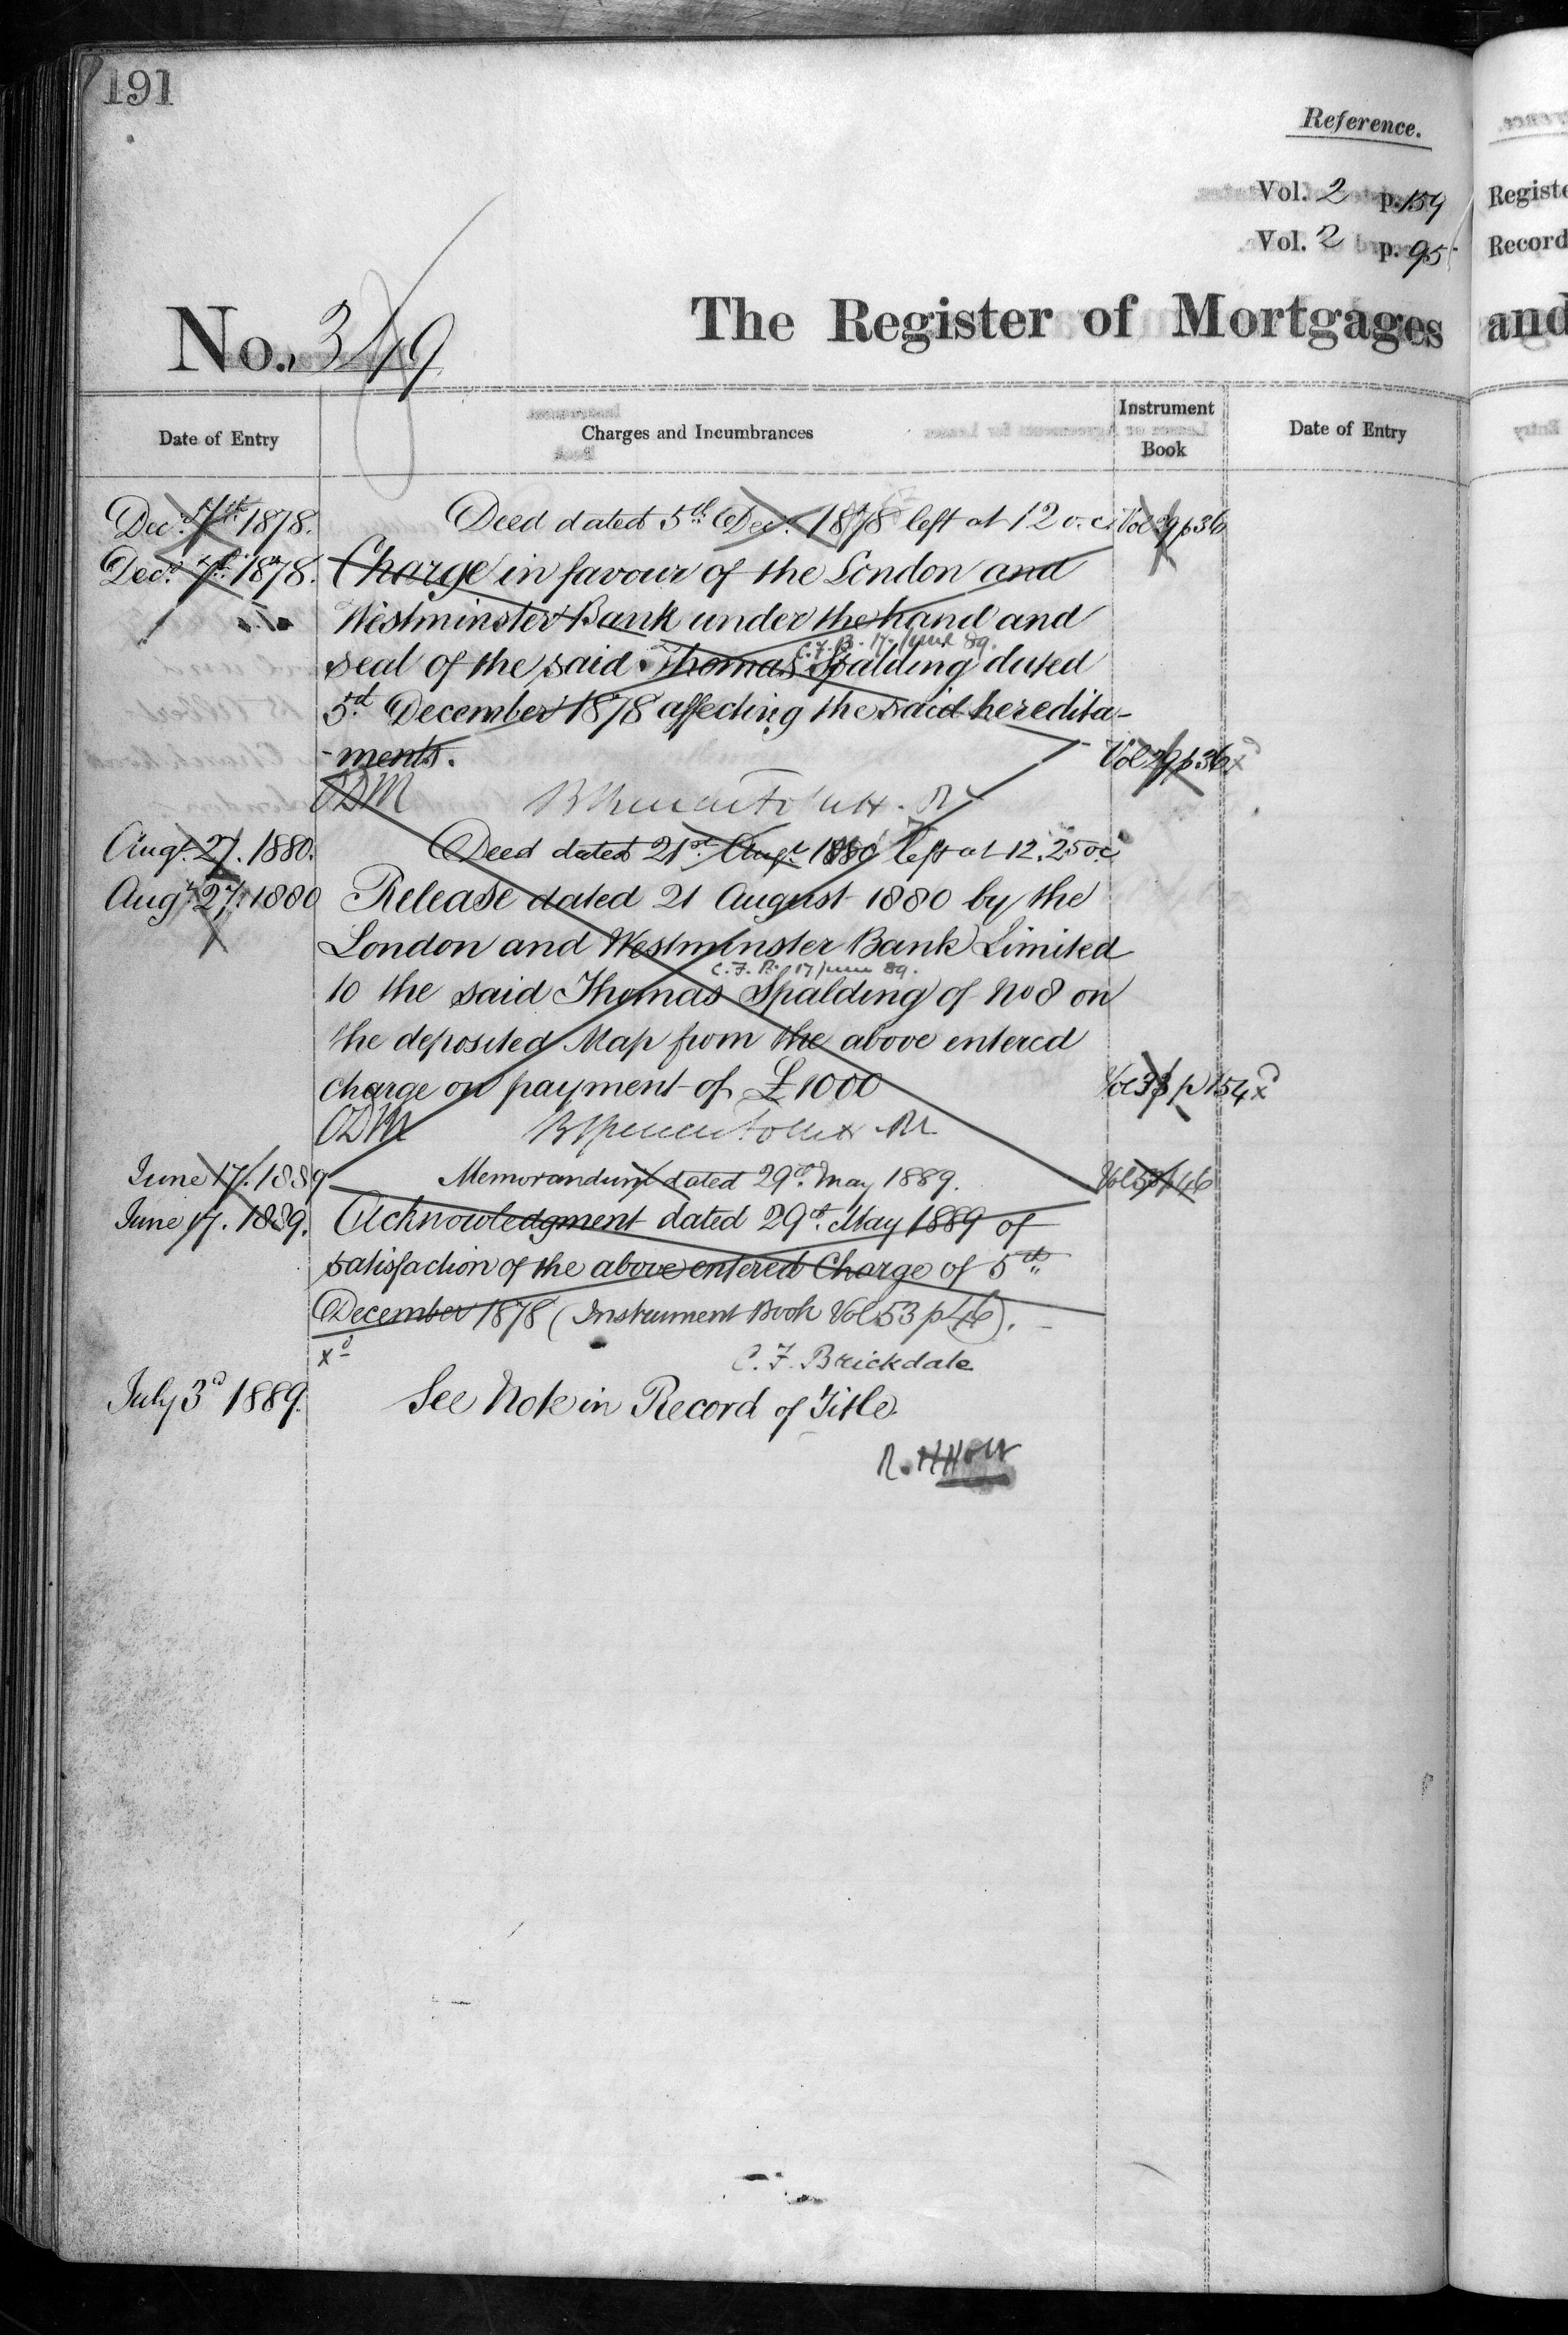 191
Reference.
Vol. 2 p. 159
Vol. 2 p. 95
Registe
Record
No. 349
The Register of Mortgages and
Date of Entry
Charges and Incumbrances
Instrument Book
Date of Entry
Dec. 7th 1878. Deed dated 5th Dec. 1878 left at 12 o.c. Vol 29 p36
Dec. 7th 1878. Charge in favour of the London and
Westminster Bank under the hand and
C.F.B. 17 June 89.
seal of the said Thomas Spalding dated
5th December 1878 affecting the said heredita-
-ments. Vol 29 p 36 xd
ODM
Augt. 27. 1880. Deed dated 21st Augt. 1880 left at 12.25 o.c.
Augt. 27. 1880 Release dated 21 August 1880 by the
London and Westminster Bank Limited
C.F.B. 17 June 89.
to the said Thomas Spalding of No 8 on
the deposited Map from the above entered
charge on payment of £1000 Vol 33 p 154 xd
ODM
June 17. 1889 Memorandum dated 29th May 1889. Vol 53 p 46
June 17. 1889. Acknowledgment dated 29th May 1889 of
satisfaction of the above entered Charge of 5th
December 1878 (Instrument Book Vol 53 p 46).
xd C. F. Brickdale
July 3d 1889. See Note in Record of Title.
R. H Holt